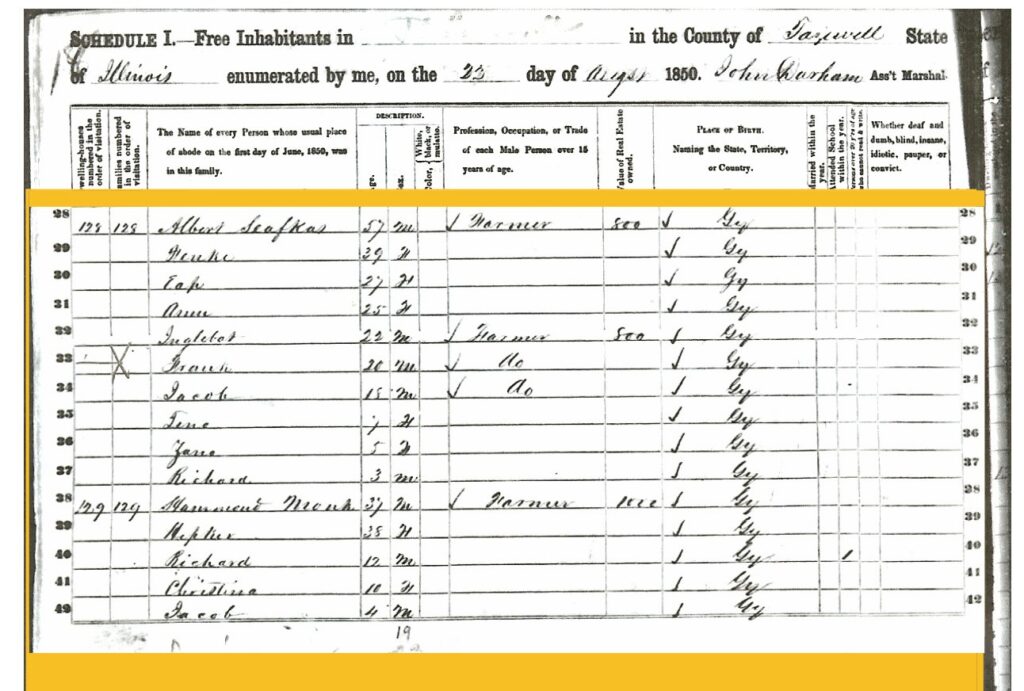 SCHEDULE I.—Free Inhabitants in in the County of Tazewell State
of Illinois enumerated by me, on the 23 day of Augst 1850. John Durham Ass't Marshal.
DESCRIPTION.
welling-houses numbered in the order of visitation.
amilies numbered in the order of visitation.
The Name of every Person whose usual place of abode on the first day of June, 1850, was in this family.
ge.
ex.
Color, White, black, or mulatto.
Profession, Occupation, or Trade of each Male Person over 15 years of age.
Value of Real Estate owned.
PLACE OF BIRTH. Naming the State, Territory, or Country.
arried within the year.
Attended School within the year.
Whether deaf and dumb, blind, insane, idiotic, pauper, or convict.
28 128 128 Albert Seafkas 57 M Farmer 800 Gy 28
29 39 F Gy 29
30 27 F Gy 30
31 Ann 25 F Gy 31
32 22 M Farmer 800 Gy 32
33 Frank 20 M Do Gy 33
34 Jacob 18 M Do Gy 34
35 Tena 7 F Gy 35
36 Zana 5 F Gy 36
37 Richard 3 M Gy 37
38 129 129 Hammond Monk 37 M Farmer 1000 Gy 38
39 38 F Gy 39
40 Richard 12 M Gy 1 40
41 Christina 10 F Gy 41
42 Jacob 4 M Gy 42
19